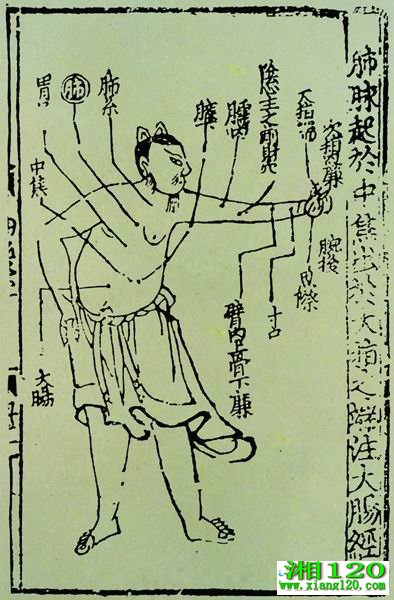 肺脉起於中焦出於大指之端注大腸經
大指端
次指內廉
腕後
魚際
寸口
臑內
臂內上骨下廉
肺系
肺
胃口
中焦
大腸
湘120
www.xiang120.com